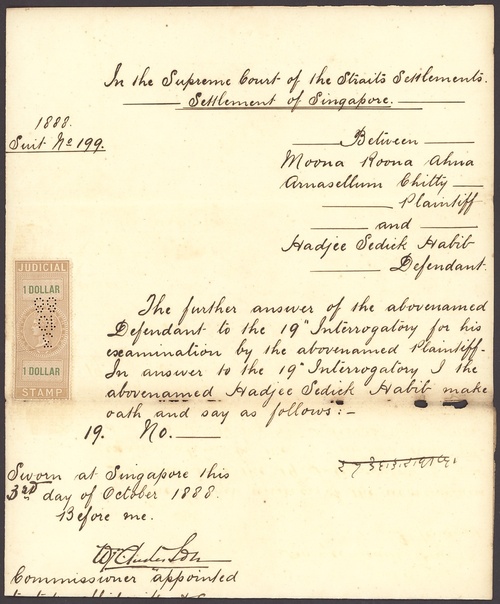 In the Supreme Court of the Straits Settlements.
Settlement of Singapore.
1888.
Suit No 199.
Between
Moona Roona Ahna
Arnasellum Chitty
Plaintiff
and
Hadjee Sedick Habib
Defendant.
JUDICIAL
1 DOLLAR
1 DOLLAR
STAMP
The further answer of the abovenamed
Defendant to the 19" Interrogatory for his
examination by the abovenamed Plaintiff-
In answer to the 19" Interrogatory I the
abovenamed Hadjee Sedick Habib make
oath and say as follows:-
19. No.
Sworn at Singapore this
3rd day of October 1888.
Before me.
Commissioner appointed